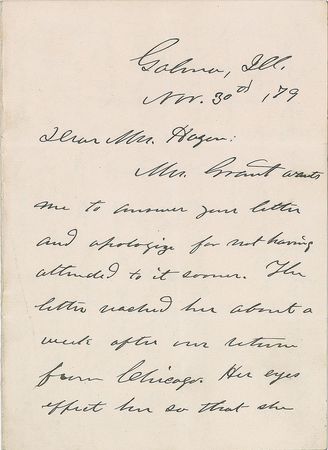 Galena, Ill.
Nov. 30th '79
Dear Mrs. Hagen:
Mrs. Grant wants
me to answer your letter
and apologize for not having
attended to it sooner. The
letter reached her about a
week after our return
from Chicago. Her eyes
effect her so that she